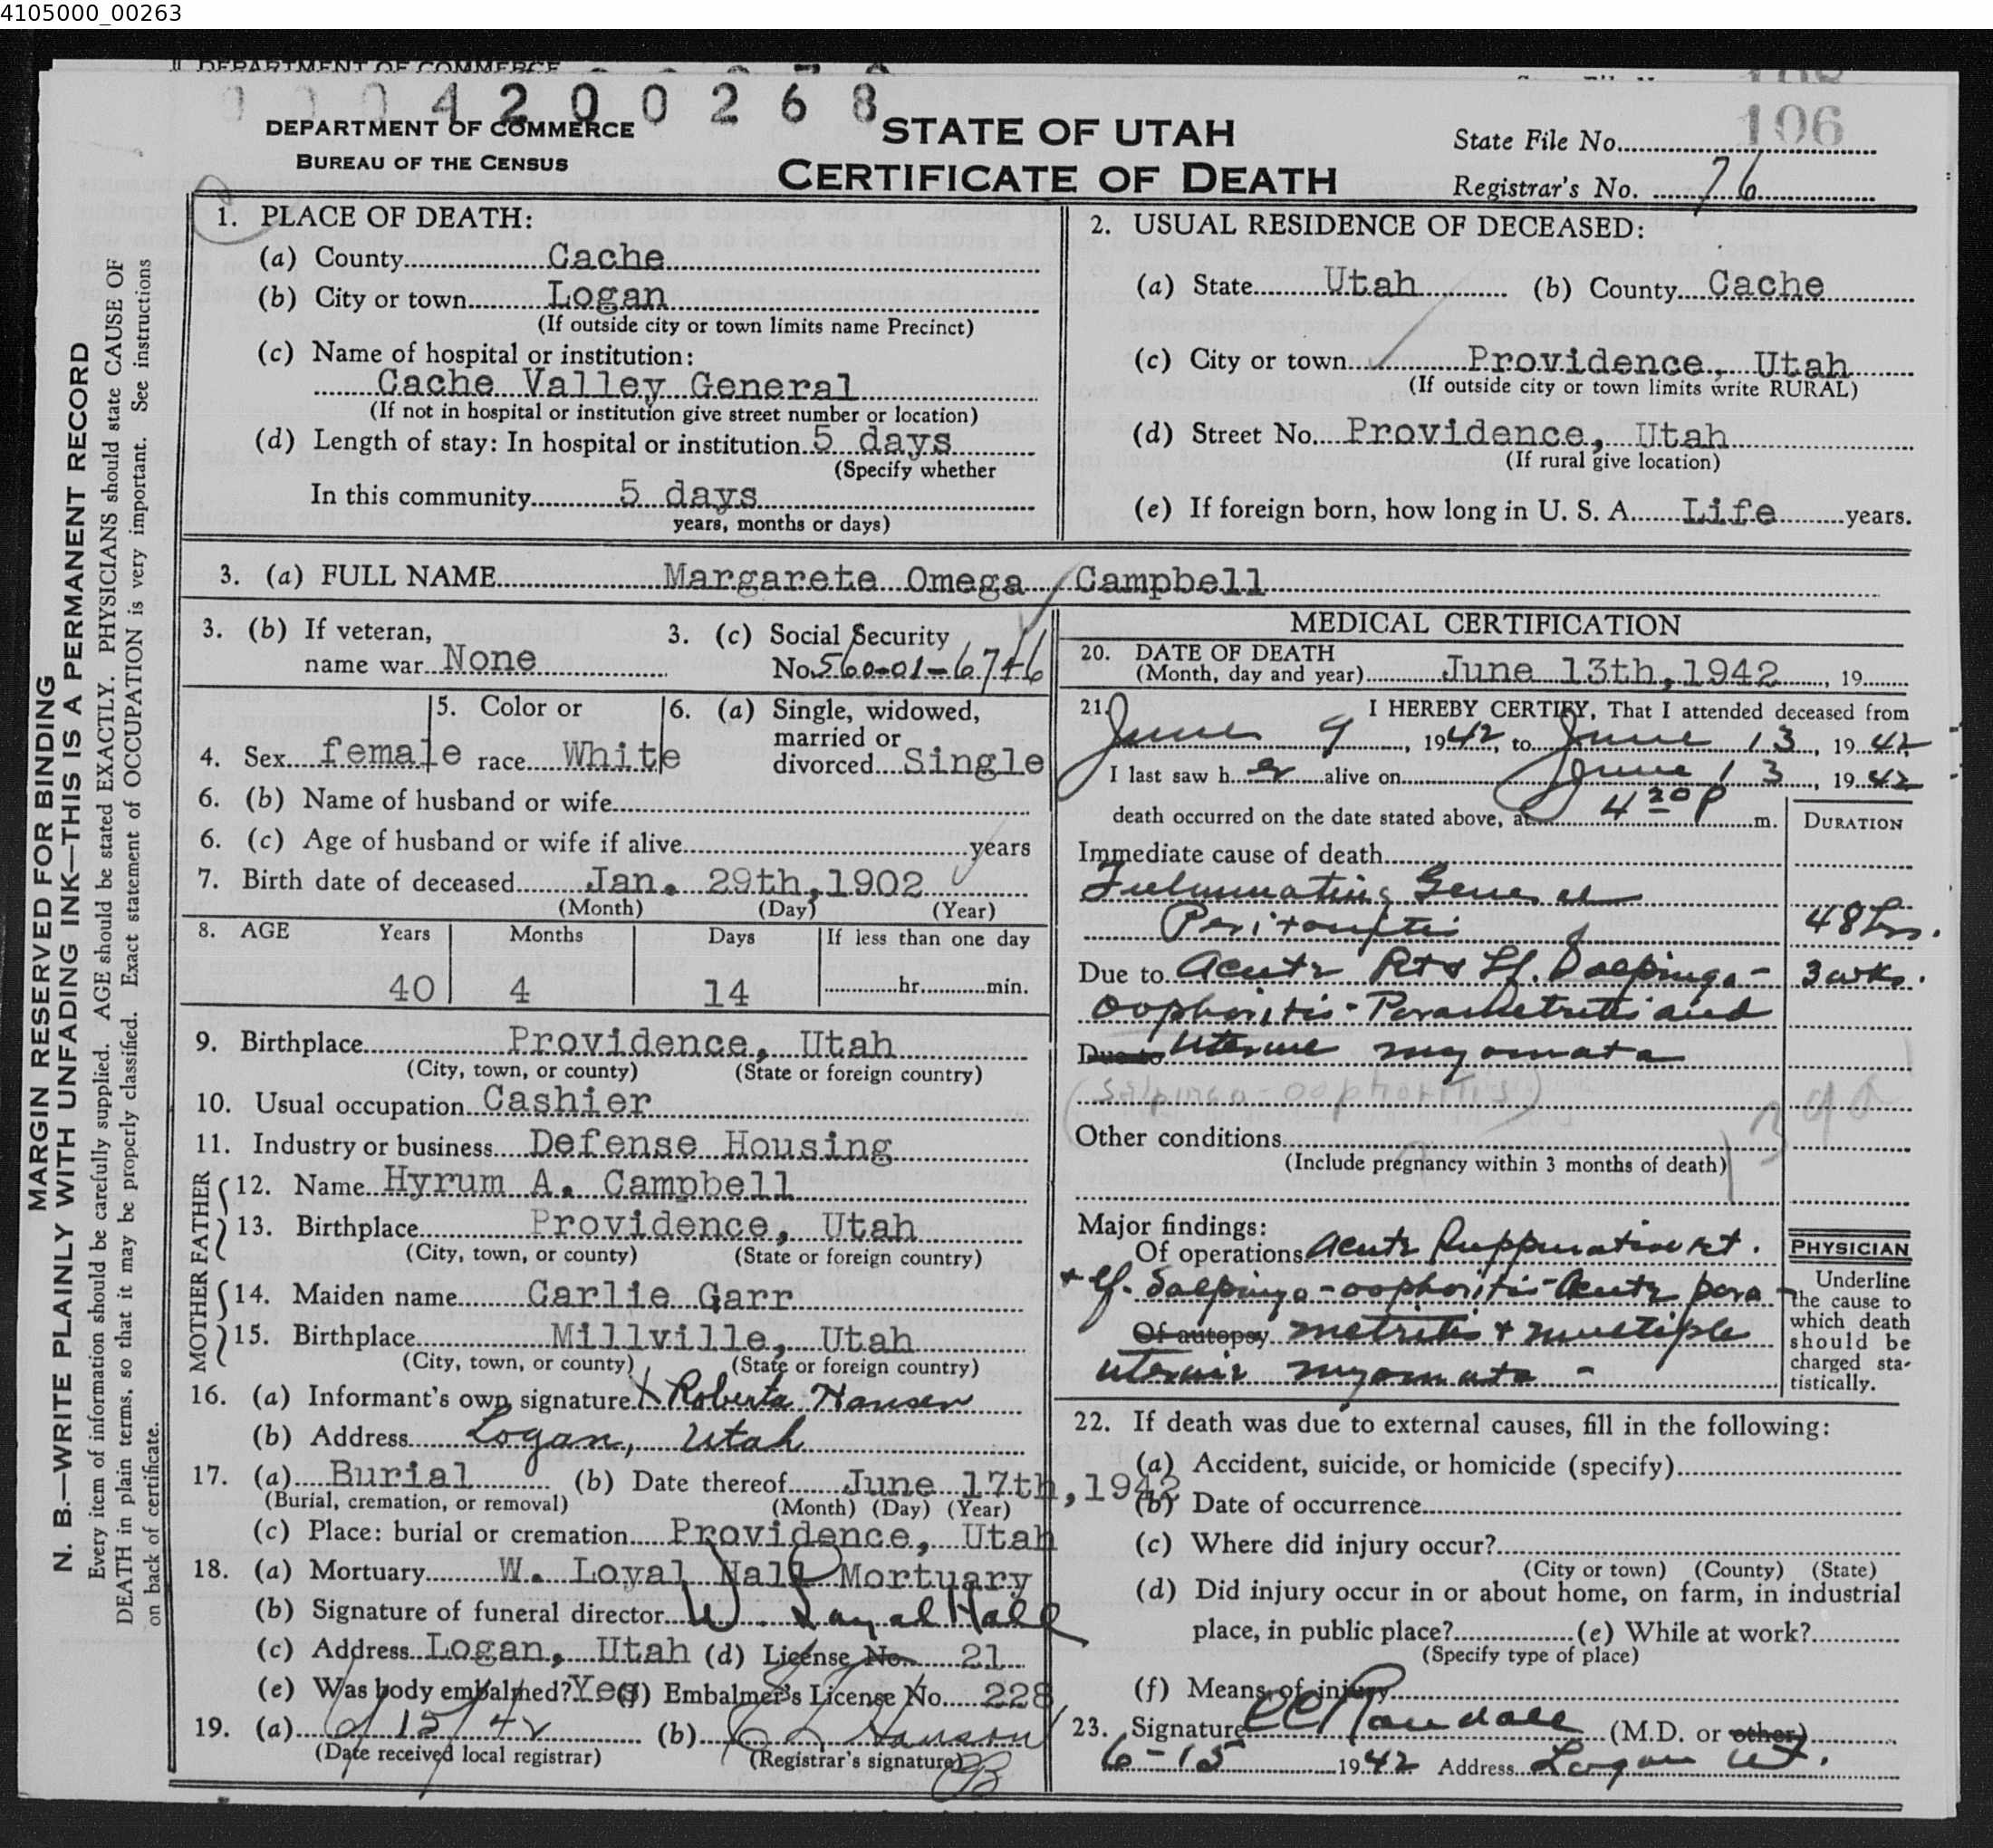 4105000_00263
DEPARTMENT OF COMMERCE
0004200268
DEPARTMENT OF COMMERCE
BUREAU OF THE CENSUS
STATE OF UTAH
CERTIFICATE OF DEATH
State File No. 106
Registrar's No. 76
MARGIN RESERVED FOR BINDING
N. B.—WRITE PLAINLY WITH UNFADING INK—THIS IS A PERMANENT RECORD
Every item of information should be carefully supplied. AGE should be stated EXACTLY. PHYSICIANS should state CAUSE OF
DEATH in plain terms, so that it may be properly classified. Exact statement of OCCUPATION is very important. See instructions
on back of certificate.
1. PLACE OF DEATH:
(a) County Cache
(b) City or town Logan
(If outside city or town limits name Precinct)
(c) Name of hospital or institution:
Cache Valley General
(If not in hospital or institution give street number or location)
(d) Length of stay: In hospital or institution 5 days
(Specify whether
In this community 5 days
years, months or days)
2. USUAL RESIDENCE OF DECEASED:
(a) State Utah (b) County Cache
(c) City or town Providence, Utah
(If outside city or town limits write RURAL)
(d) Street No. Providence, Utah
(If rural give location)
(e) If foreign born, how long in U. S. A. Life years.
3. (a) FULL NAME Margarete Omega Campbell
3. (b) If veteran,
name war None
3. (c) Social Security
No. 560-01-6746
4. Sex female
5. Color or
race White
6. (a) Single, widowed,
married or
divorced Single
6. (b) Name of husband or wife
6. (c) Age of husband or wife if alive years
7. Birth date of deceased Jan. 29th, 1902
(Month) (Day) (Year)
8. AGE Years Months Days If less than one day
40 4 14 hr. min.
9. Birthplace Providence, Utah
(City, town, or county) (State or foreign country)
10. Usual occupation Cashier
11. Industry or business Defense Housing
FATHER
12. Name Hyrum A. Campbell
13. Birthplace Providence, Utah
(City, town, or county) (State or foreign country)
MOTHER
14. Maiden name Carlie Garr
15. Birthplace Millville, Utah
(City, town, or county) (State or foreign country)
16. (a) Informant's own signature X Roberta Hansen
(b) Address Logan, Utah
17. (a) Burial (b) Date thereof June 17th, 1942
(Burial, cremation, or removal) (Month) (Day) (Year)
(c) Place: burial or cremation Providence, Utah
18. (a) Mortuary W. Loyal Hall Mortuary
(b) Signature of funeral director W. Loyal Hall
(c) Address Logan, Utah (d) License No. 21
(e) Was body embalmed? Yes (f) Embalmer's License No. 228
19. (a) 6/15/42 (b) Hanson
(Date received local registrar) (Registrar's signature)
MEDICAL CERTIFICATION
20. DATE OF DEATH
(Month, day and year) June 13th, 1942, 19
21. I HEREBY CERTIFY, That I attended deceased from
June 9, 1942, to June 13, 1942
I last saw her alive on June 13, 1942
death occurred on the date stated above, at 4 20 P m.
DURATION
Immediate cause of death
Fulminating General
Peritonitis 48 hrs.
Due to Acute Rt & Lf. Salpingo- 3 wks.
oophoritis - Parametritis and
Due to Uterine myomata
(Salpingo-oophoritis)
Other conditions
(Include pregnancy within 3 months of death)
Major findings:
Of operations Acute Suppurative rt.
+ lf. Salpingo-oophoritis - Acute para
Of autopsy metritis + multiple
uterine myomata -
PHYSICIAN
Underline
the cause to
which death
should be
charged sta-
tistically.
22. If death was due to external causes, fill in the following:
(a) Accident, suicide, or homicide (specify)
(b) Date of occurrence
(c) Where did injury occur?
(City or town) (County) (State)
(d) Did injury occur in or about home, on farm, in industrial
place, in public place? (e) While at work?
(Specify type of place)
(f) Means of injury
23. Signature CC Randall (M.D. or other)
6-15 1942 Address Logan Ut.